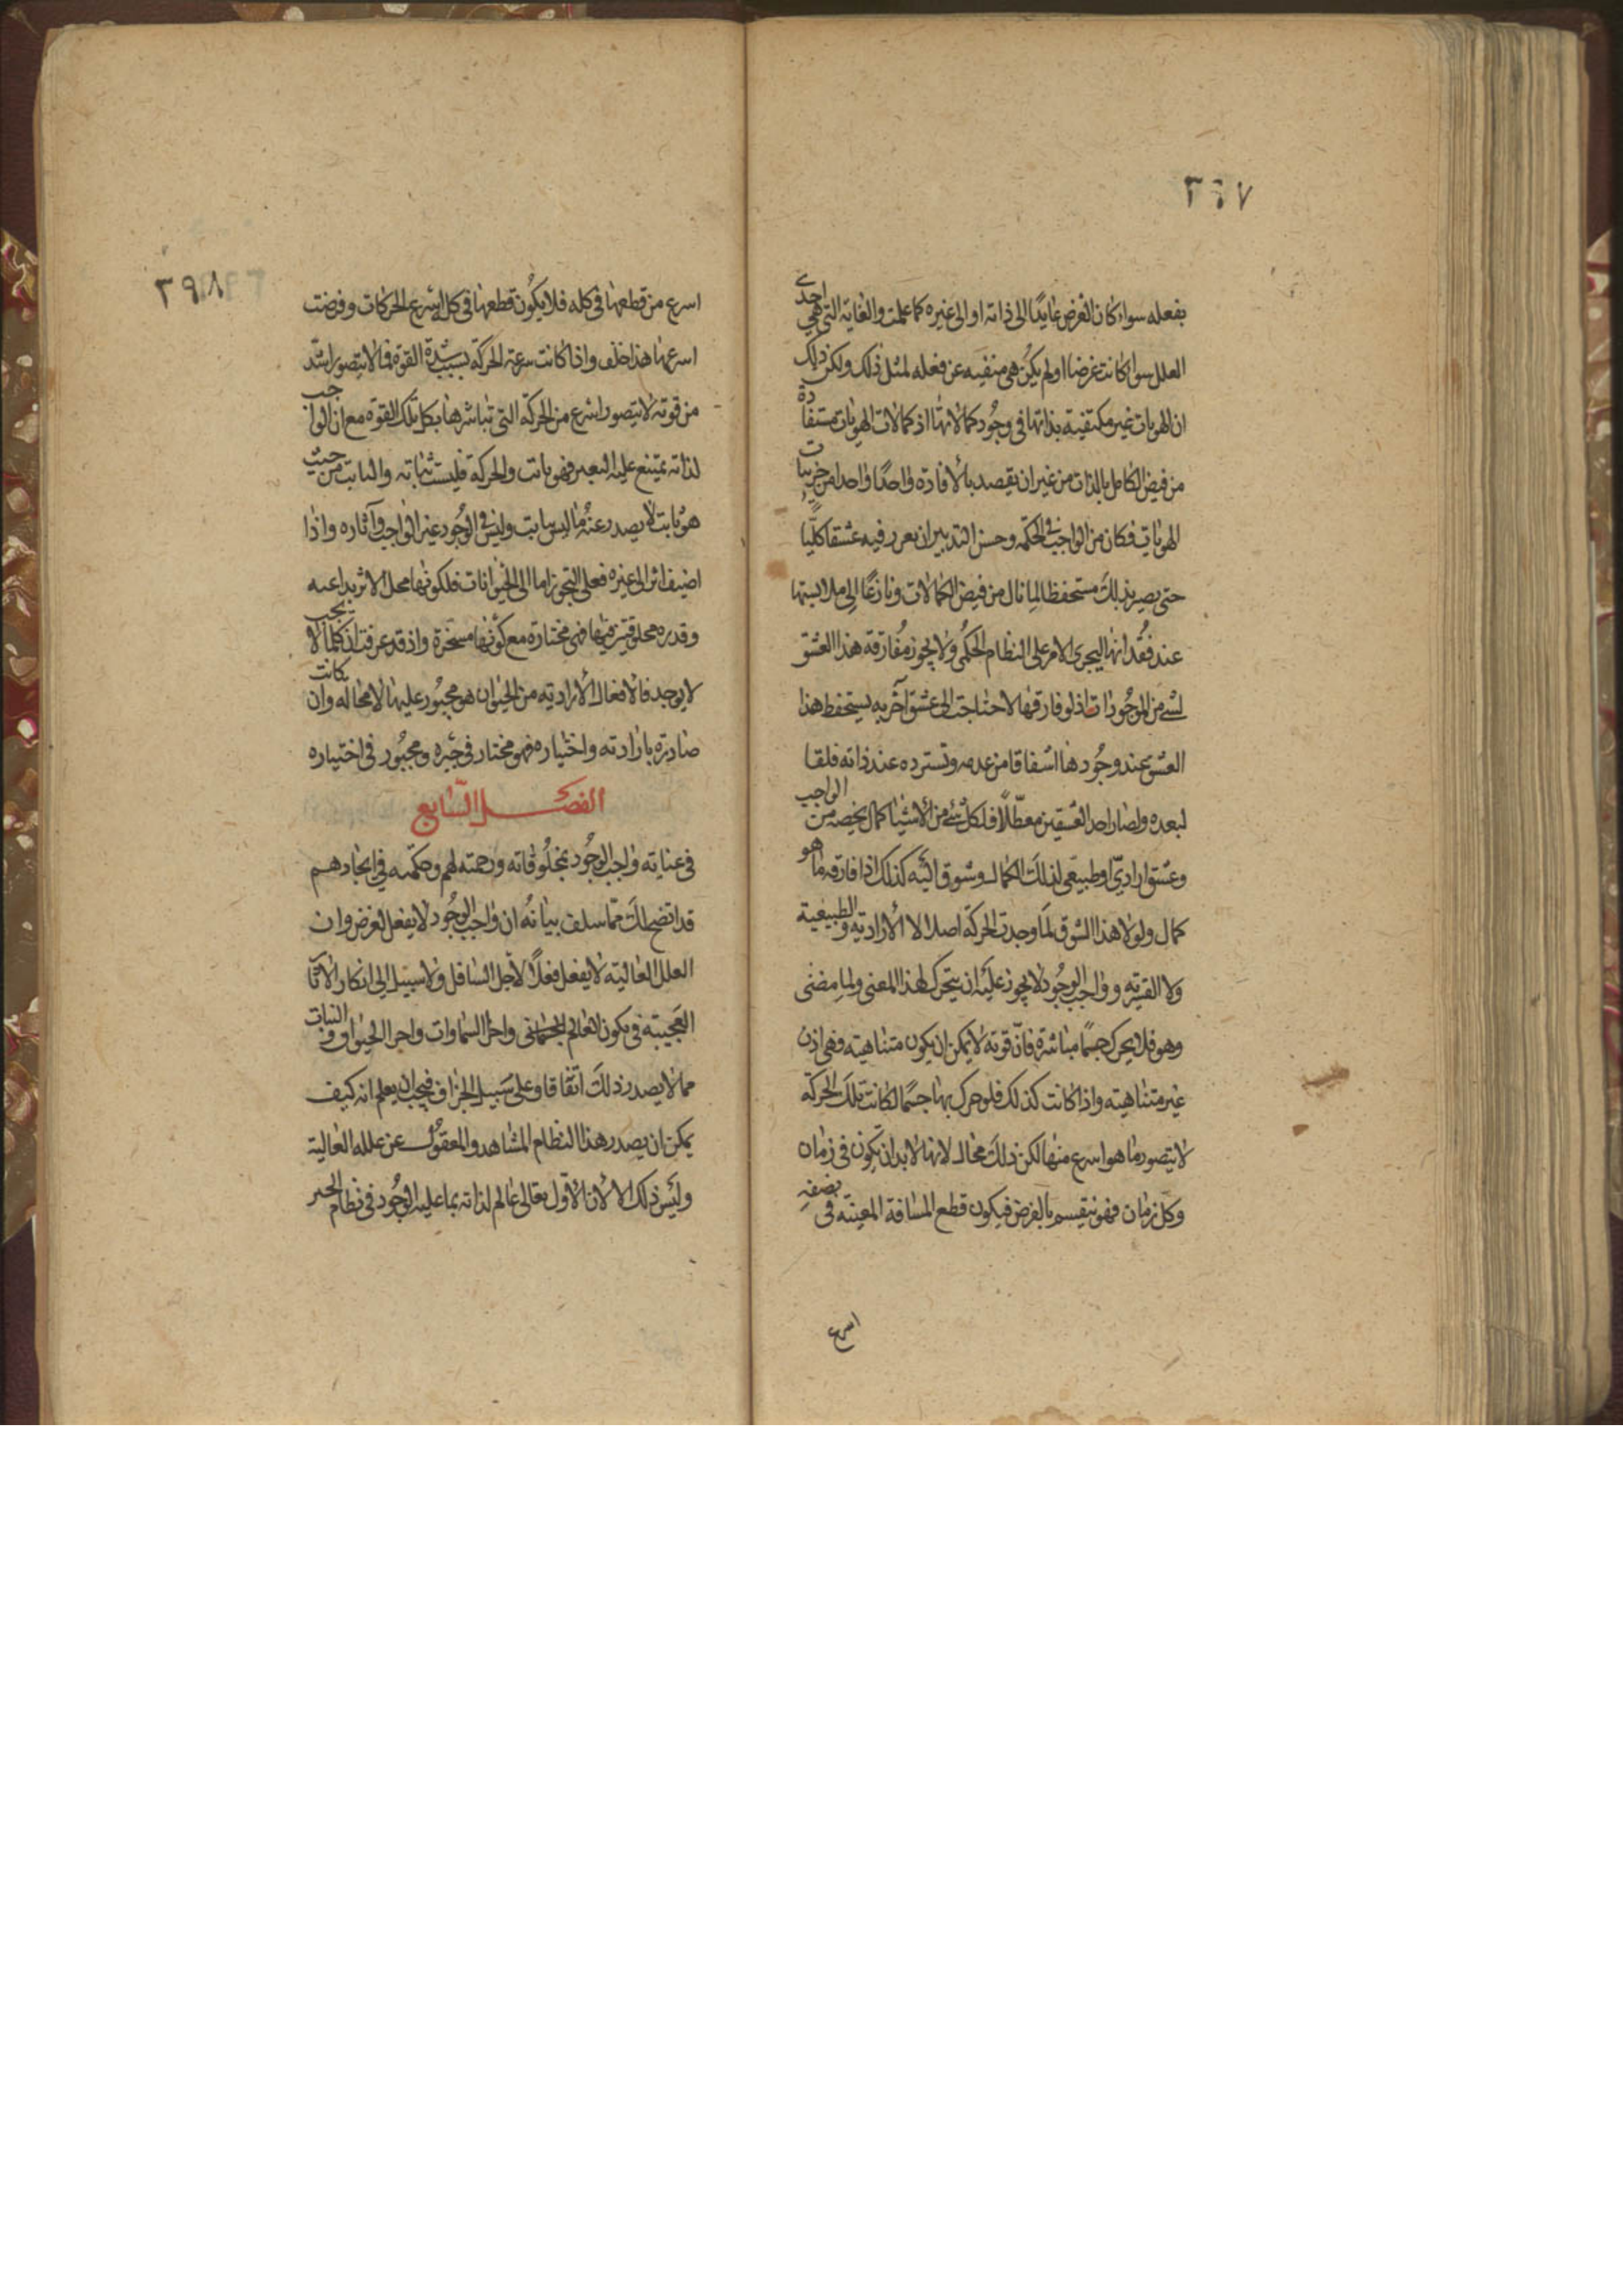 ٣٩٧
بفعله سواء كان الغرض عايدًا الى ذاته او الى غيره كما علمت والغاية التي هي احدى
العلل سواء كانت غرضا او لم يكن هي منفية عن فعله لمثل ذلك ولكن ذلك
ان الهويات غير مكتفية بذاتها في وجود كمالاتها اذ كمالات الهويات مستفادة
من فيض الكامل بالذات من غير ان يقصد بالافادة واحدًا واحدا من جزيات
الهويات فكان من الواجب في الحكمة وحسن التدبير ان يعرز فيه عشقا كليًّا
حتى يصير بذلك مستحفظا لما نال من فيض الكمالات ونازعًا الى ملابستها
عند فقدانها ليجرى الامر على النظام الحكمي ولا يجوز مفارقة هذا العشق
لشئ من الموجودات اذ لو فارقها لاحتاجت الى عشق آخر به يستحفظ هذا
العشق عند وجودها اشفاقا من عدمه وتسترده عند فاته قلقا
لبعده ولصار احد العشقين معطّلًا فلكل شئ من الاشيا كمال يخصه من الواجب
وعشق ارادىّ او طبيعى لذلك الكمال وشوق اليه كذلك اذا فارقه ما هو
كمال ولولا هذا الشوق لما وجدت الحركة اصلا لا الارادية والطبيعية
ولا القسرية وواجب الوجود لا يجوز عليه ان يتحرك لهذا المعنى ولما مضى
وهو فلا يحرك جسمًا مباشرة فانّ قوته لا يمكن ان يكون متناهية وهى اذن
غير متناهية واذا كانت كذلك فلو حرك بها جسمًا لكانت تلك الحركة
لا يتصور ما هو اسرع منها لكن ذلك محال لانها لابد ان تكون في زمان
وكل زمان فهو ينقسم بالفرض فيكون قطع المسافة المعينة في نصفه
اسرع
٣٩٨
اسرع من قطعها في كله فلا يكون قطعها في كل اسرع الحركات وفرضت
اسرعها هذا خلف واذا كانت سرعة الحركة بسبب شدة القوة فما لا يتصور اشد
من قوته لا يتصور اسرع من الحركة التي تباشرها بكل تلك القوة مع ان الواجب
لذاته يمتنع عليه التغير فهو ثابت والحركة فليست ثابتة والثابت من حيث
هو ثابت لا يصدر عنه ما ليس بثابت وليس في الوجود غير الواجب وآثاره واذا
اضيف اثر الى غيره فعلى التجوز اما الى الحيوانات فلكونها محل الاثر بداعية
وقدرة مخلوقتين فيها فهي مختارة مع كونها مسخرة واذ قد عرفت ان كلما لا يجب
لا يوجد فالافعال الارادية من الحيوان هو مجبور عليها لا محالة وان كانت
صادرة بارادته واختياره فهو مختار في جبره ومجبور في اختياره
الفصل السابع
في عناية واجب الوجود بمخلوقاته ورحمته لهم وحكمته في ايجادهم
قد اتضح لك مما سلف بيانه ان واجب الوجود لا يفعل لغرض وان
العلل العالية لا يفعل فعلًا لاجل السافل ولا سبيل الى انكار الآثار
العجيبة في تكون العالم الجسمانى واجزا السماوات واجزا الحيوان والنبات
مما لا يصدر ذلك اتفاقا وعلى سبيل الجزاف فيجب ان يعلم انه كيف
يمكن ان يصدر هذا النظام المشاهد والمعقول عن علله العالية
وليس ذلك الا لان الاول تعالى عالم لذاته بما عليه الوجود في نظام الخير